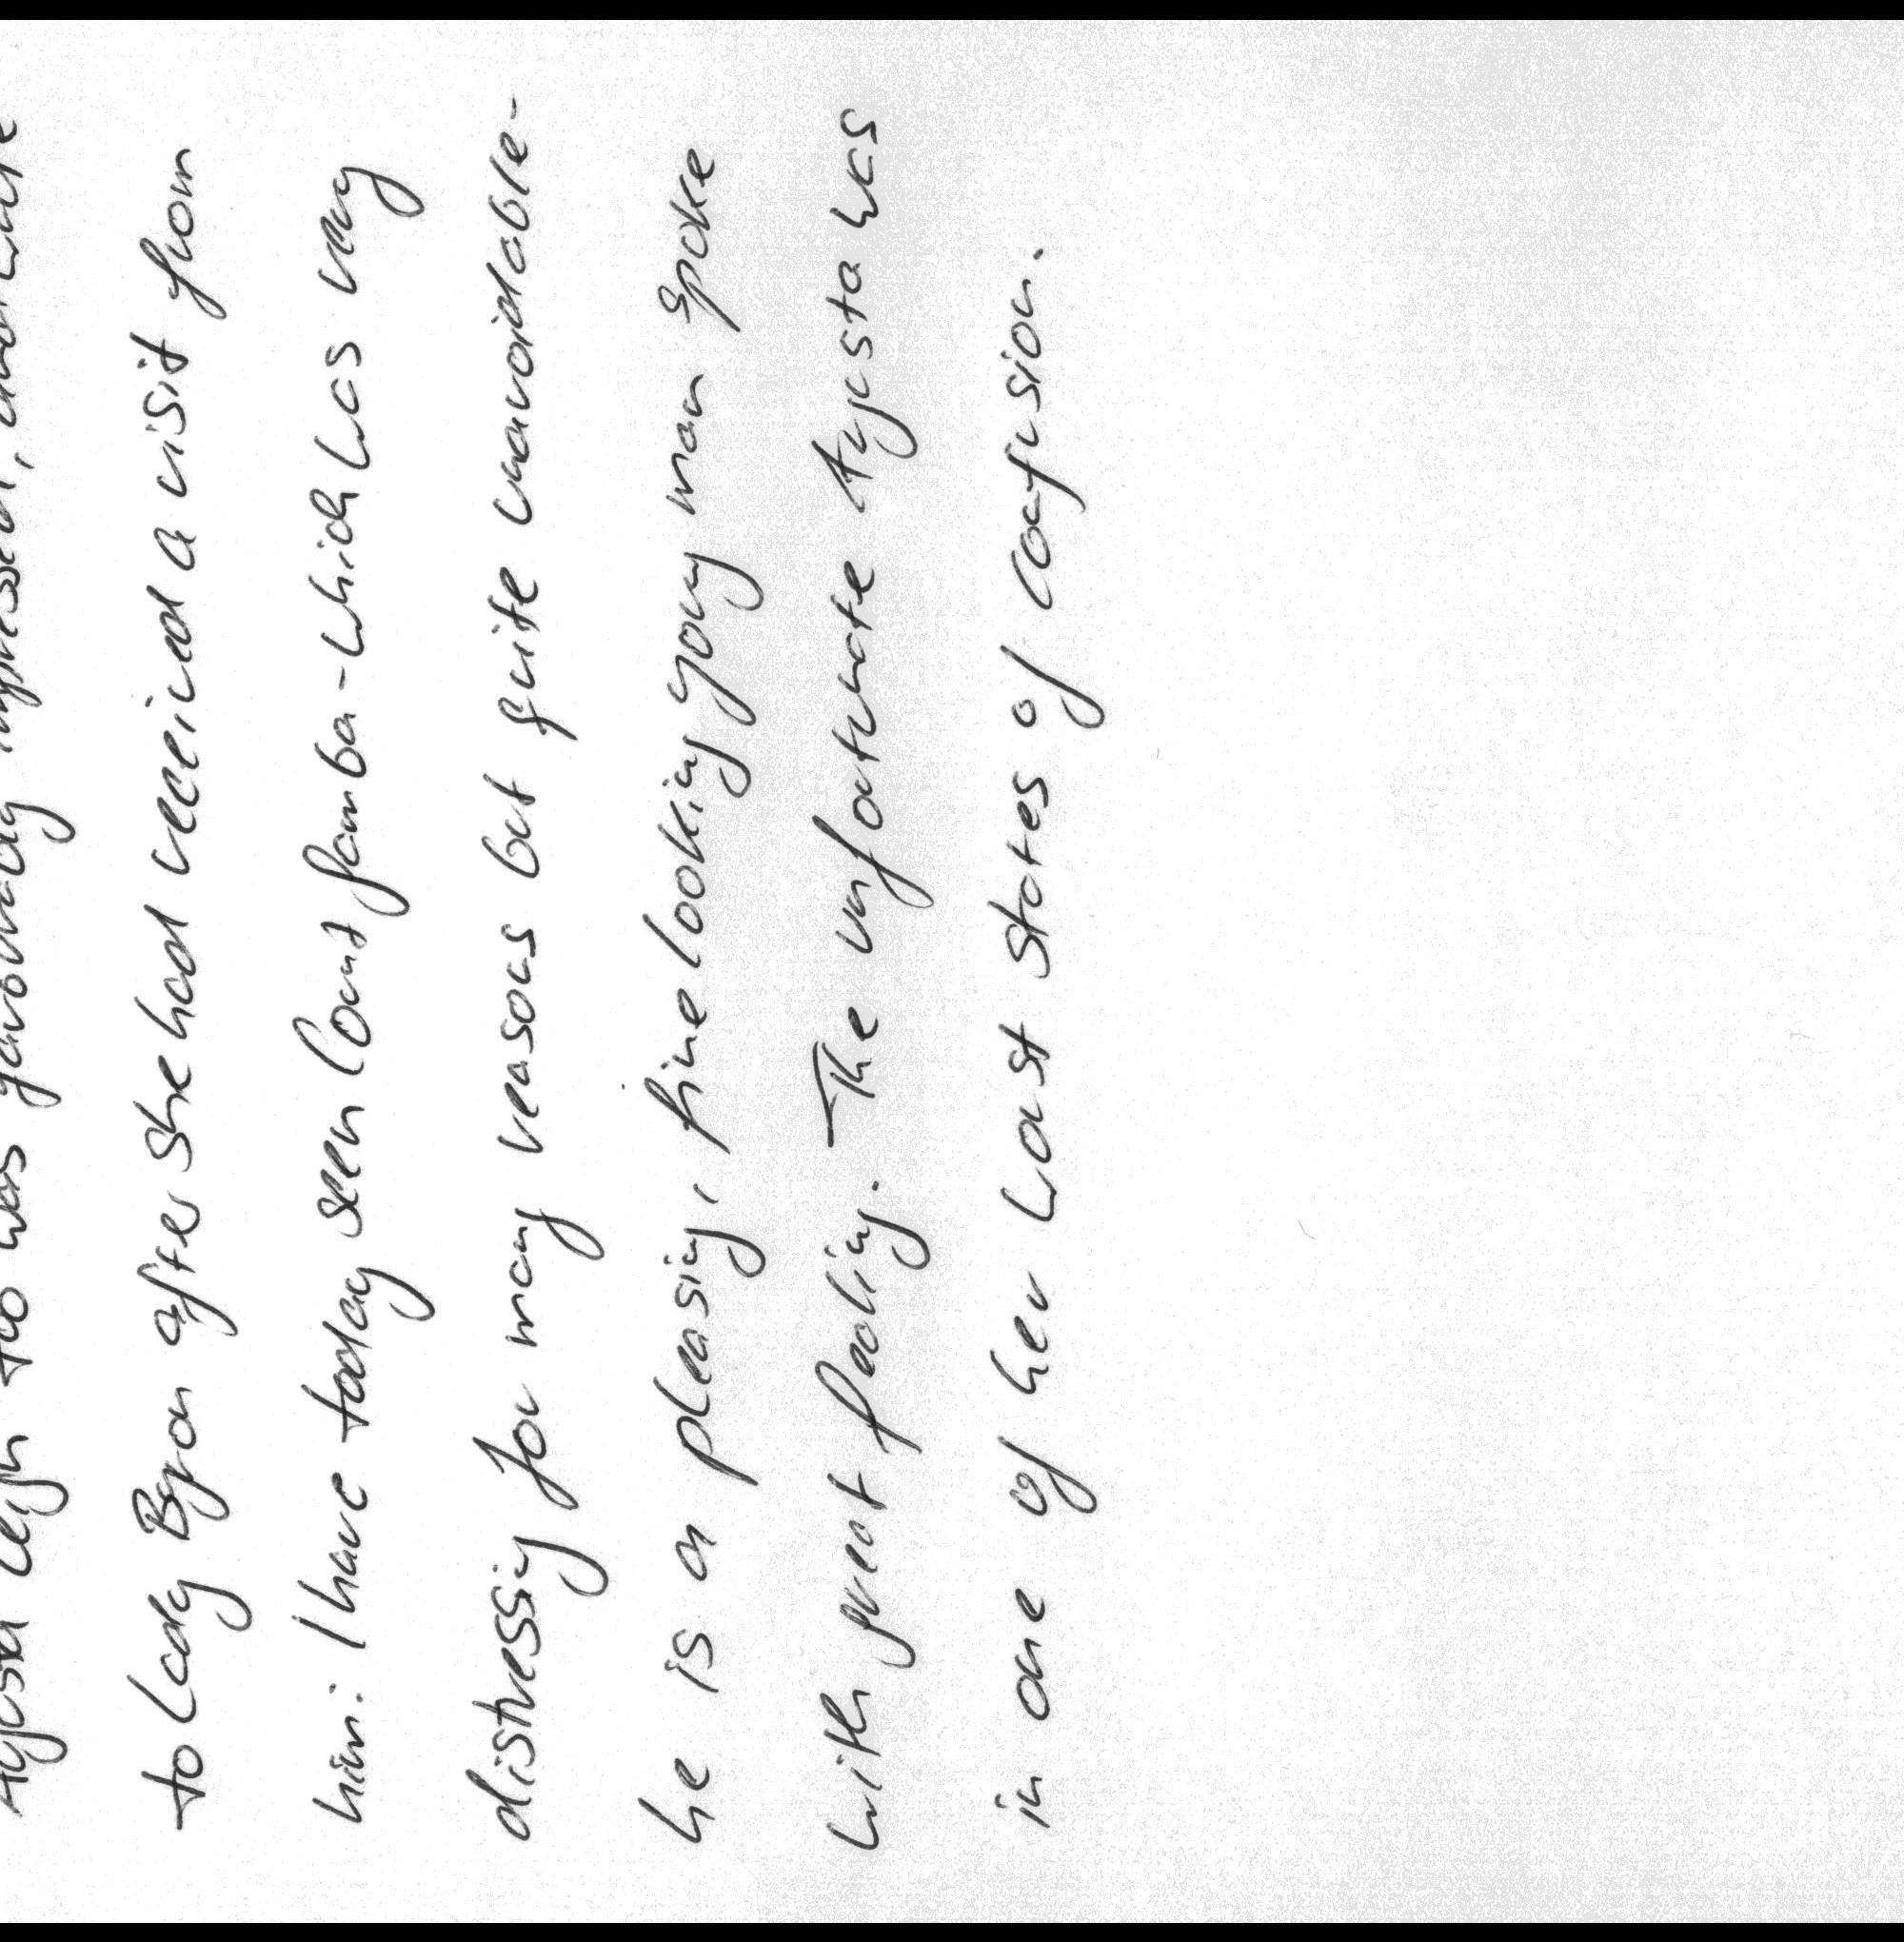 Augusta Leigh too was favourably impressed, and wrote
to Lady Byron after she had received a visit from
him: I have today seen Count Gamba - which was very
distressing for many reasons but quite unavoidable-
he is a pleasing, fine looking young man spoke
with great feeling. The unfortunate Augusta was
in one of her Last states of confusion.